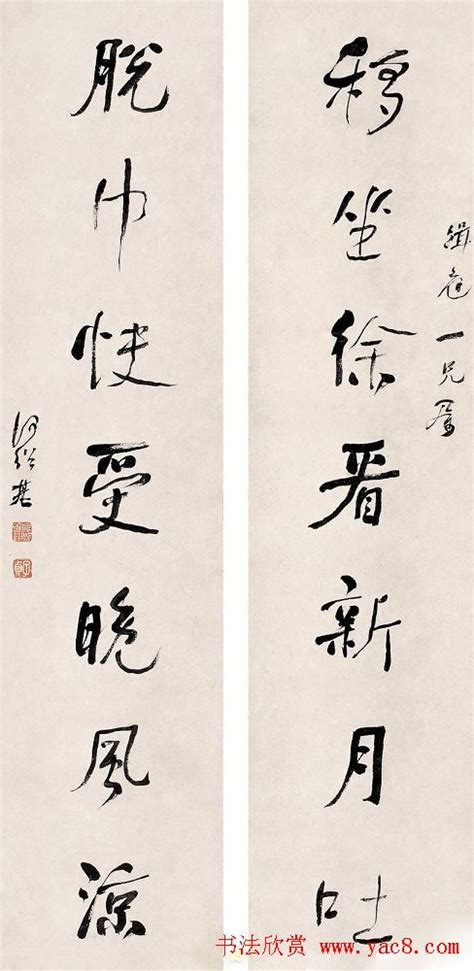 緝一兄屬
移坐徐看新月吐
脫巾快受晚風涼
何紹基
书法欣赏 www.yac8.com